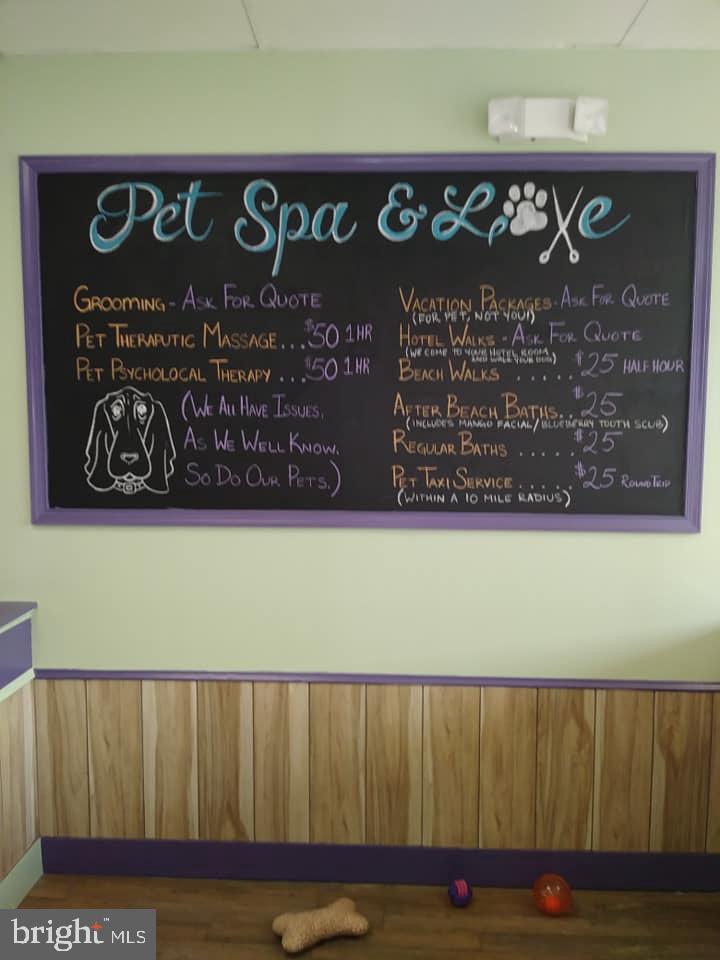 Pet Spa & Love
GROOMING - ASK FOR QUOTE
PET THERAPUTIC MASSAGE...$50 1 HR
PET PSYCHOLOCAL THERAPY ...$50 1 HR
(WE ALL HAVE ISSUES,
AS WE WELL KNOW.
SO DO OUR PETS.)
VACATION PACKAGES - ASK FOR QUOTE
(FOR PET, NOT YOU!)
HOTEL WALKS - ASK FOR QUOTE
(WE COME TO YOUR HOTEL ROOM
AND WALK YOUR DOG)
BEACH WALKS ...... $25 HALF HOUR
AFTER BEACH BATHS.. $25
(INCLUDES MANGO FACIAL/BLUEBERRY TOOTH SCUB)
REGULAR BATHS ..... $25
PET TAXI SERVICE ..... $25 ROUND TRIP
(WITHIN A 10 MILE RADIUS)
bright MLS